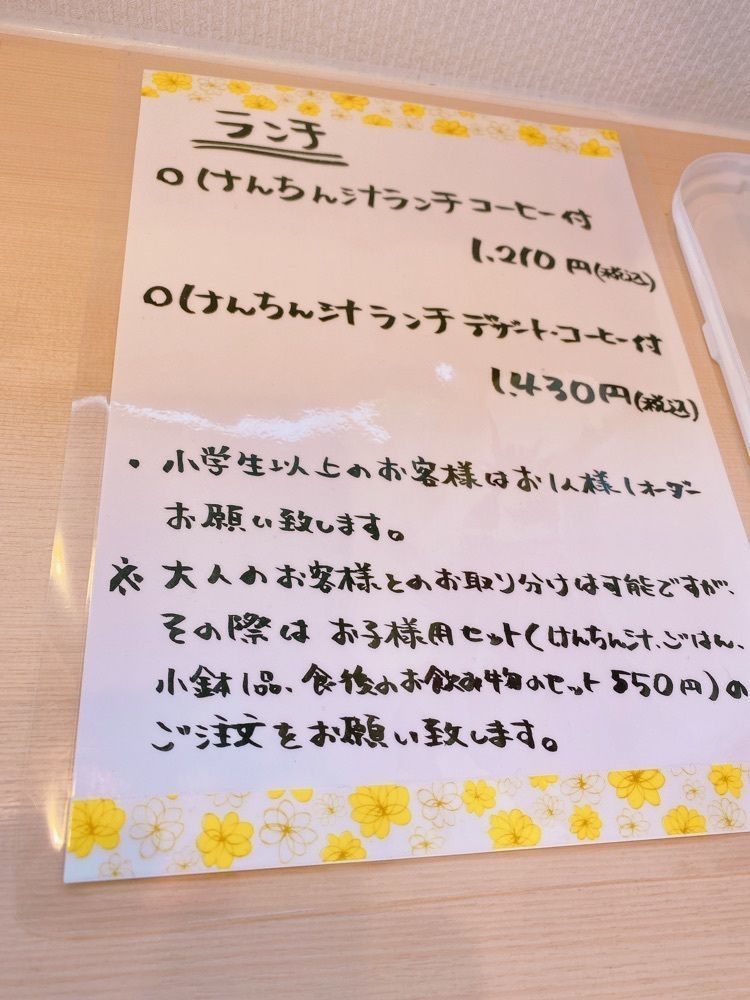 ランチ
○けんちん汁ランチ コーヒー付
1,210円(税込)
○けんちん汁ランチ デザート・コーヒー付
1,430円(税込)
・小学生以上のお客様はお1人様1オーダー
お願い致します。
※大人のお客様とのお取り分けは可能ですが、
その際は お子様用セット(けんちん汁、ごはん、
小鉢1品、食後のお飲み物のセット 550円)の
ご注文をお願い致します。